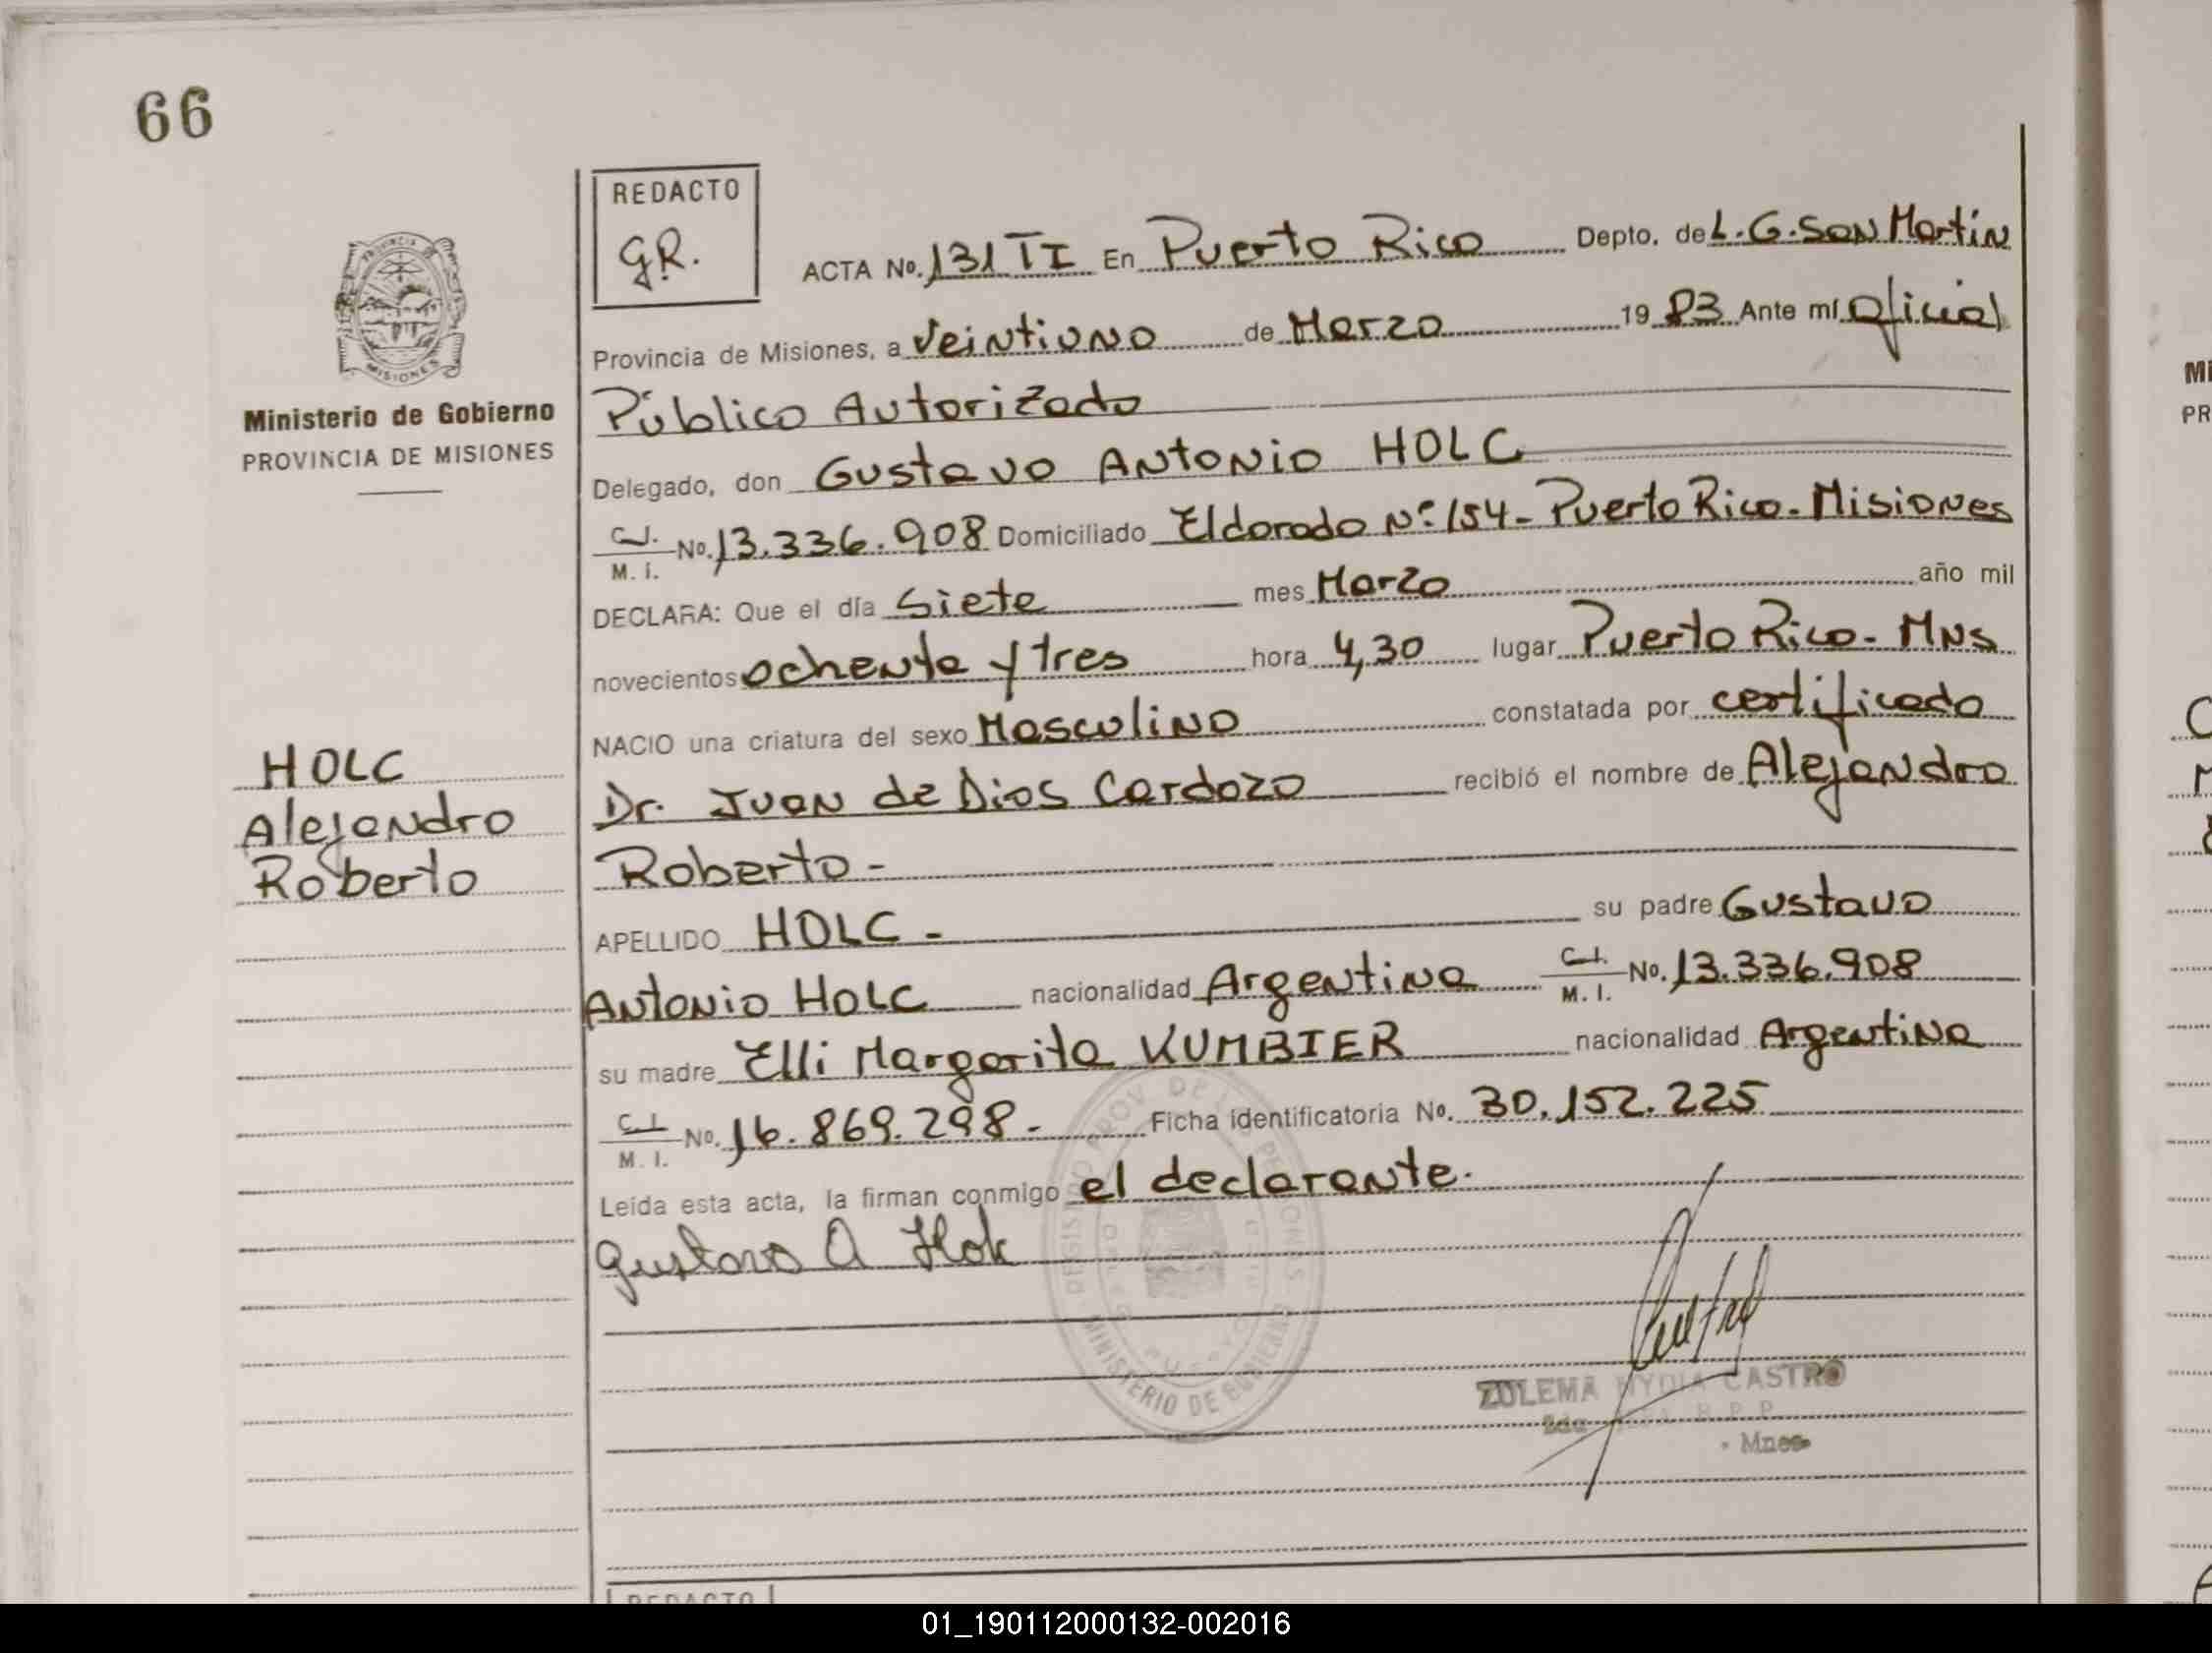 66
REDACTO
GR.
ACTA No. 131 TI En Puerto Rico Depto. de L. G. San Martin
Provincia de Misiones, a Veintiuno de Marzo 19 83 Ante mí Oficial
Público Autorizado
Ministerio de Gobierno
PROVINCIA DE MISIONES
Delegado, don Gustavo Antonio HOLC
C.I.
M. I. No. 13.336.908 Domiciliado Eldorado Nº 154 - Puerto Rico - Misiones
DECLARA: Que el día Siete mes Marzo año mil
novecientos ochenta y tres hora 4,30 lugar Puerto Rico - Mns
NACIO una criatura del sexo Masculino constatada por certificado
HOLC
Alejandro
Roberto
Dr. Juan de Dios Cardozo recibió el nombre de Alejandro
Roberto -
APELLIDO HOLC - su padre Gustavo
Antonio HOLC nacionalidad Argentina C.I.
M. I. No. 13.336.908
su madre Elli Margarita KUMBIER nacionalidad Argentina
C.I.
M. I. No. 16.869.298 - Ficha identificatoria No. 30.152.225
Leída esta acta, la firman conmigo el declarante.
Gustavo A Holc
REGISTRO PROV. DE LAS PERSONAS
MINISTERIO DE GOBIERNO
ZULEMA NYDIA CASTRO
R.P.P.
Mnes
REDACTO
01_190112000132-002016